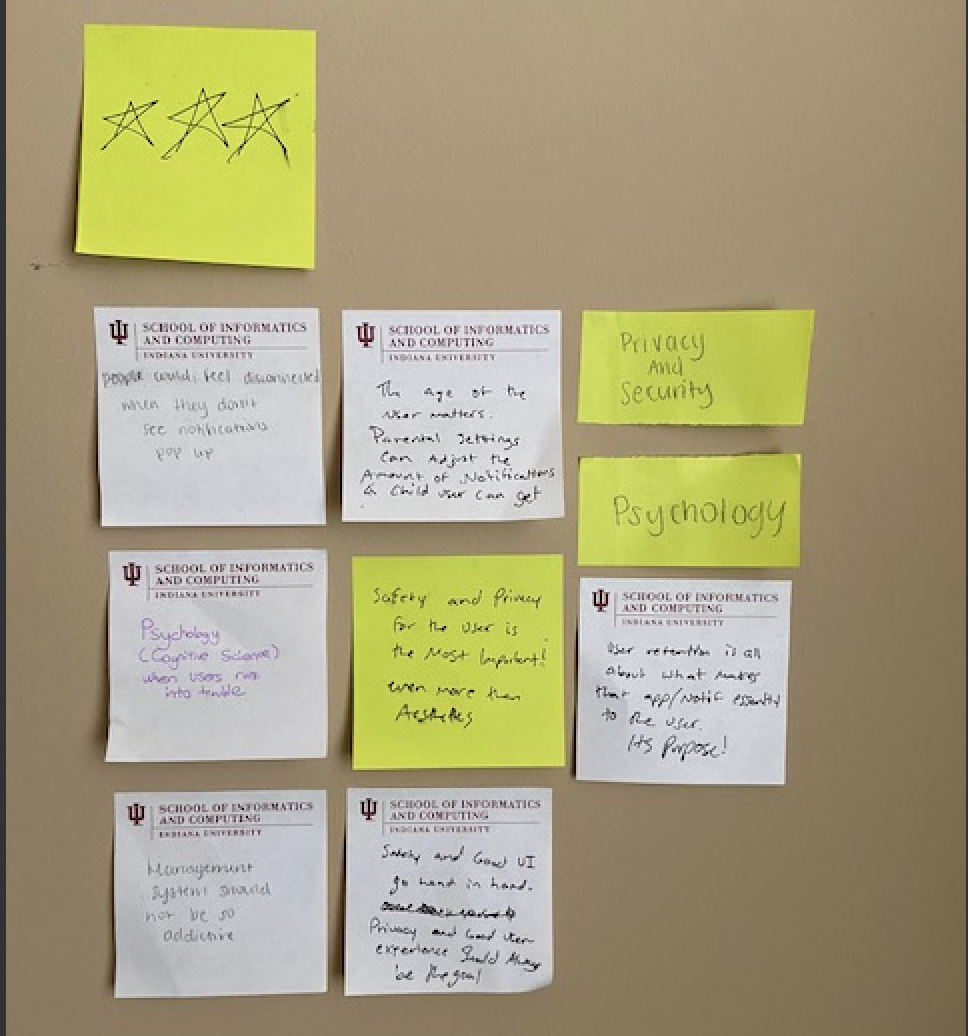 SCHOOL OF INFORMATICS
AND COMPUTING
INDIANA UNIVERSITY
people could feel disconnected
when they don't
see notifications
pop up
SCHOOL OF INFORMATICS
AND COMPUTING
INDIANA UNIVERSITY
The age of the
user matters.
Parental Settings
Can Adjust the
Amount of Notifications
a Child user can get
Privacy
And
Security
Psychology
SCHOOL OF INFORMATICS
AND COMPUTING
INDIANA UNIVERSITY
Psychology
(Cognitive Science)
when users run
into trouble
Safety and Privacy
for the user is
the Most Important!
even more than
Aesthetics
SCHOOL OF INFORMATICS
AND COMPUTING
INDIANA UNIVERSITY
User retention is all
About what makes
that app/Notif essential
to the user.
Its Purpose!
SCHOOL OF INFORMATICS
AND COMPUTING
INDIANA UNIVERSITY
Management
System should
not be so
addictive
SCHOOL OF INFORMATICS
AND COMPUTING
INDIANA UNIVERSITY
Safety and Good UI
go hand in hand.
Privacy and Good user
experience Should Always
be the goal